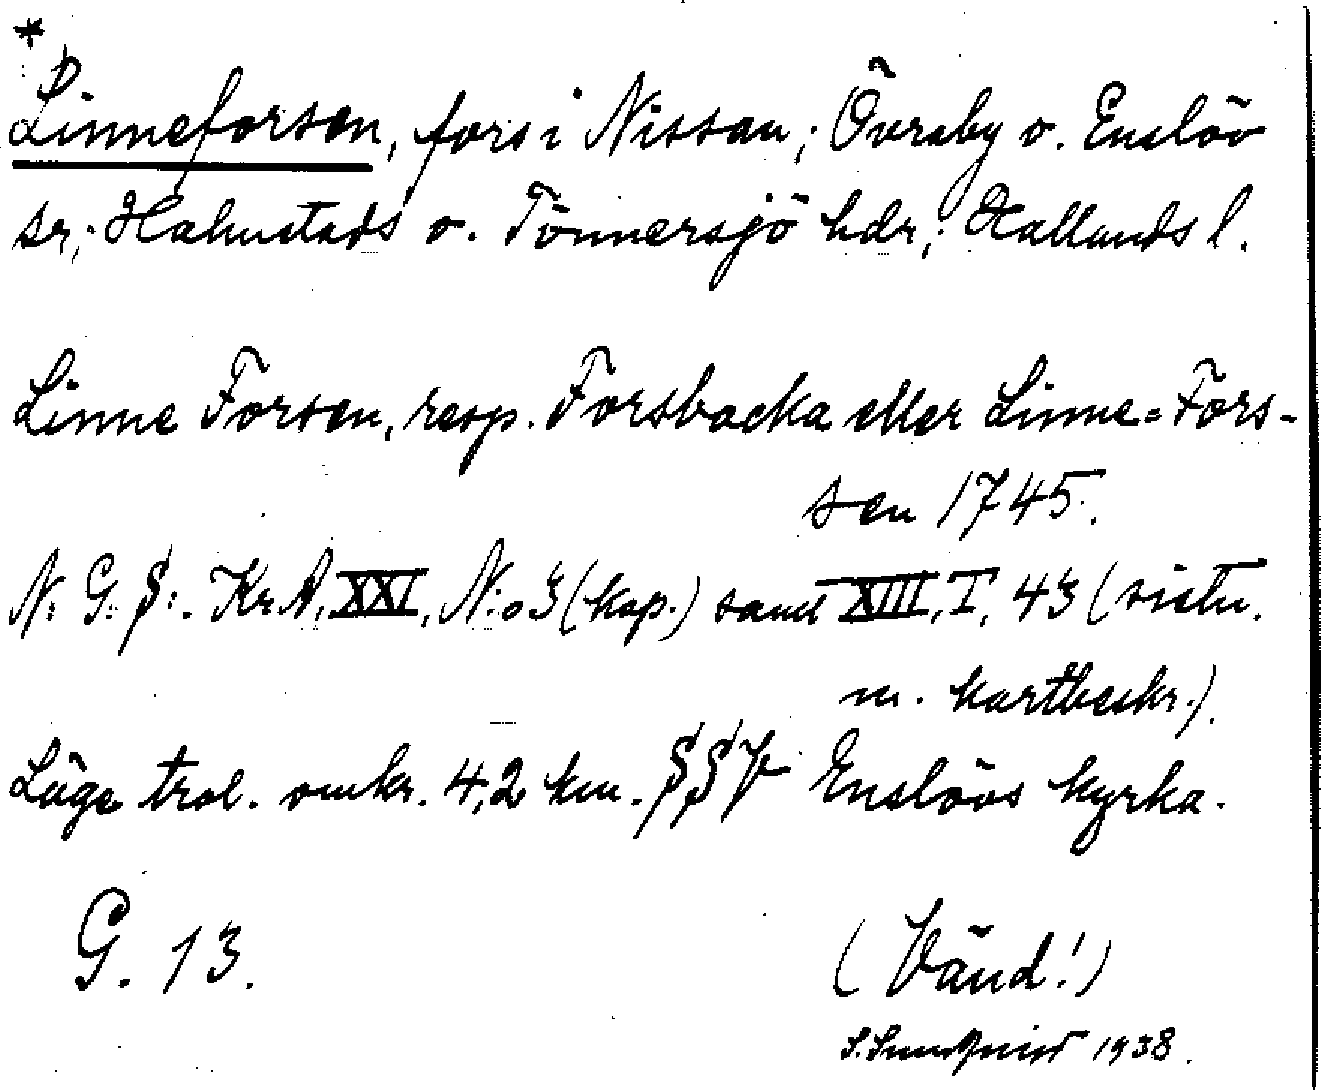 *
Linneforsen, fors i Nissan; Övraby o. Enslöv
sr; Halmstads o. Tönnersjö hdr; Hallands l.
Linne Forsen, resp. Forsbacka eller Linne=Fors-
sen 1745.
N: G. S:. Kr.A. XXI, N:o 3 (kop.) samt XIII, I, 43 (vistn.
m. kartbeskr.).
Läge trol. omkr. 4,2 km. SSV Enslövs kyrka.
G. 13.
(Vänd!)
S. Sundqvist 1938.